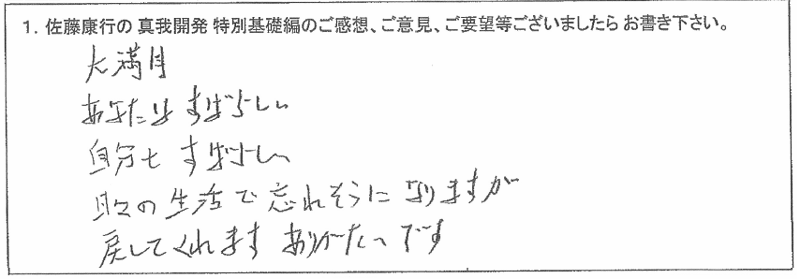 1. 佐藤康行の 真我開発 特別基礎編のご感想、ご意見、ご要望等ございましたら お書き下さい。
大満月
あなたは すばらしい
自分も すばらしい
日々の 生活で 忘れそうに なりますが
戻してくれます ありがたいです